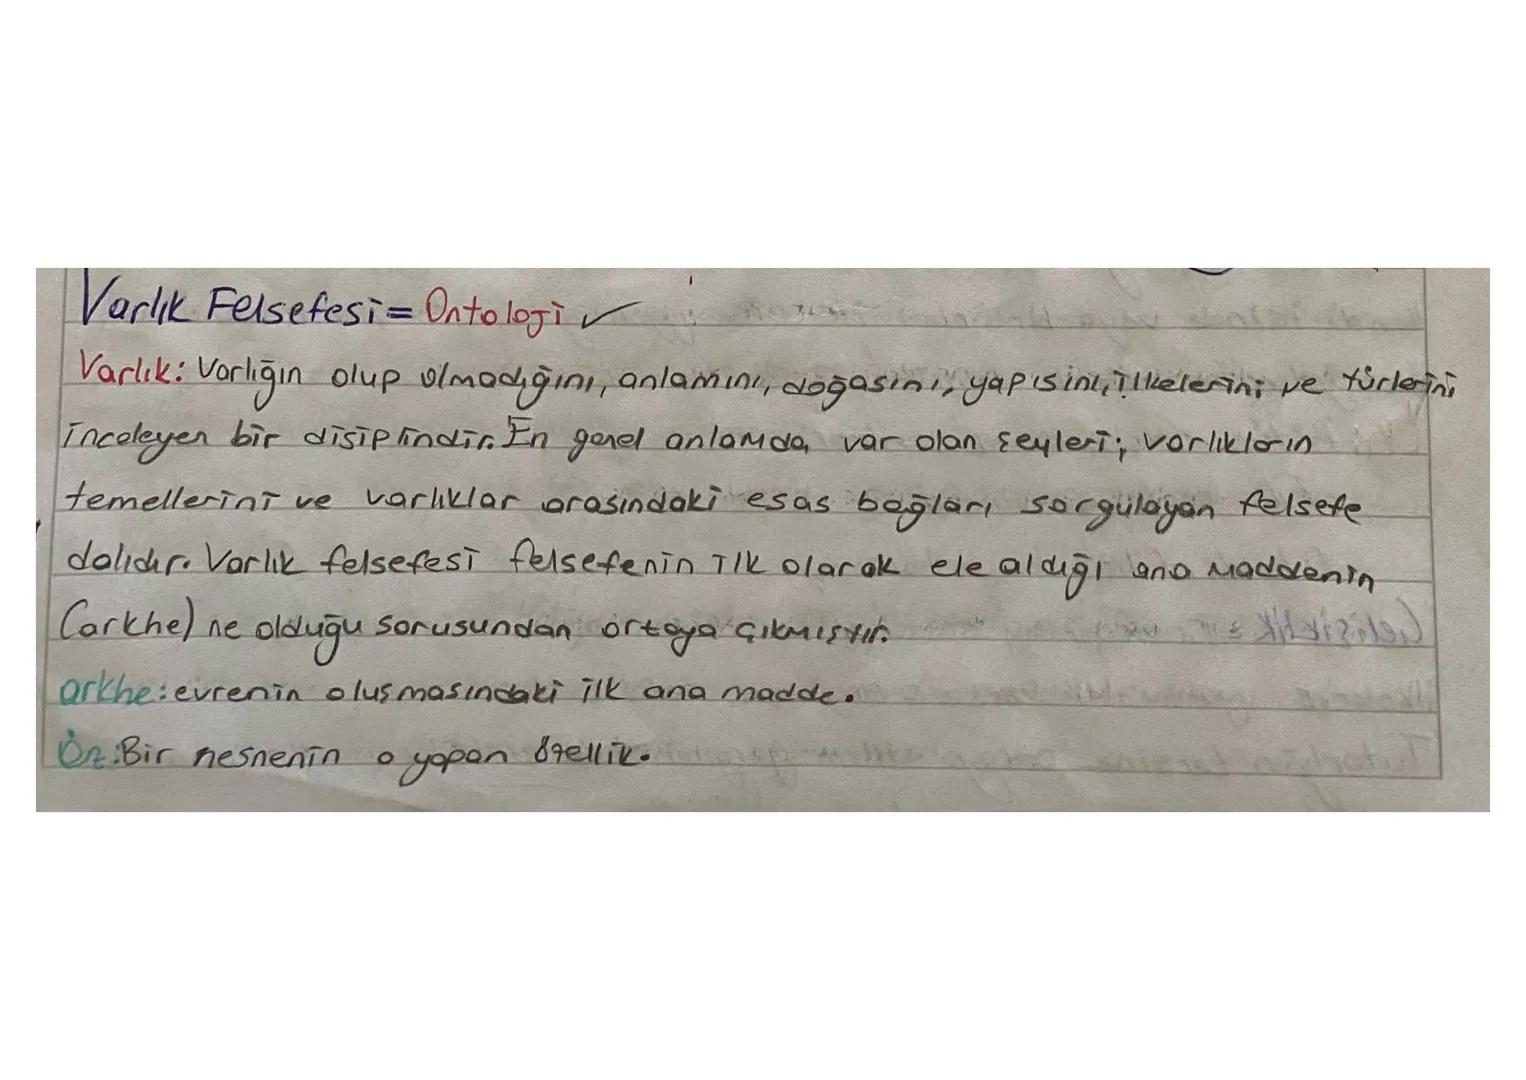 Varlık Felsefesi = Ontoloji ✓
Varlık: Varlığın olup olmadığını, anlamını, doğasını, yapısını, ilkelerini ve türlerini
inceleyen bir disiplindir. En genel anlamda var olan şeyleri; varlıkların
temellerini ve varlıklar arasındaki esas bağları sorgulayan felsefe
dalıdır. Varlık felsefesi felsefenin ilk olarak ele aldığı ana maddenin
(arkhe) ne olduğu sorusundan ortaya çıkmıştır.
arkhe: evrenin oluşmasındaki ilk ana madde.
Öz: Bir nesnenin o yapan özellik.